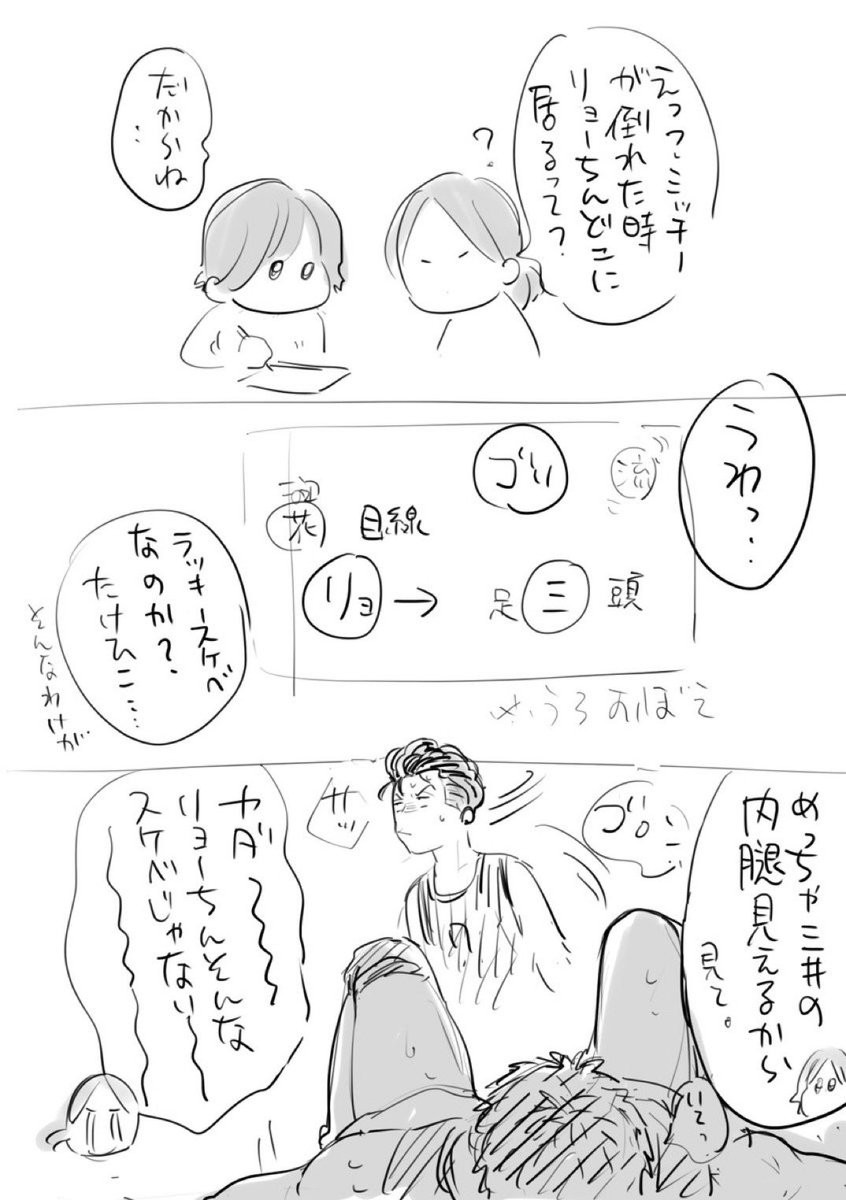 えっっミッチー
が倒れた時
リョーちんどこに
居るって?
?
だからね
‥
うわっ‥
ゴリ
流
花
目線
リョ→
足
三
頭
※うろおぼえ
ラッキースケベ
なのか?
たけひこ…
そんなわけが
めっちゃ三井の
内腿見えるから
見て。
サッ
ヤダ〜〜
リョーちんそんな
スケベじゃない〜
いてっ